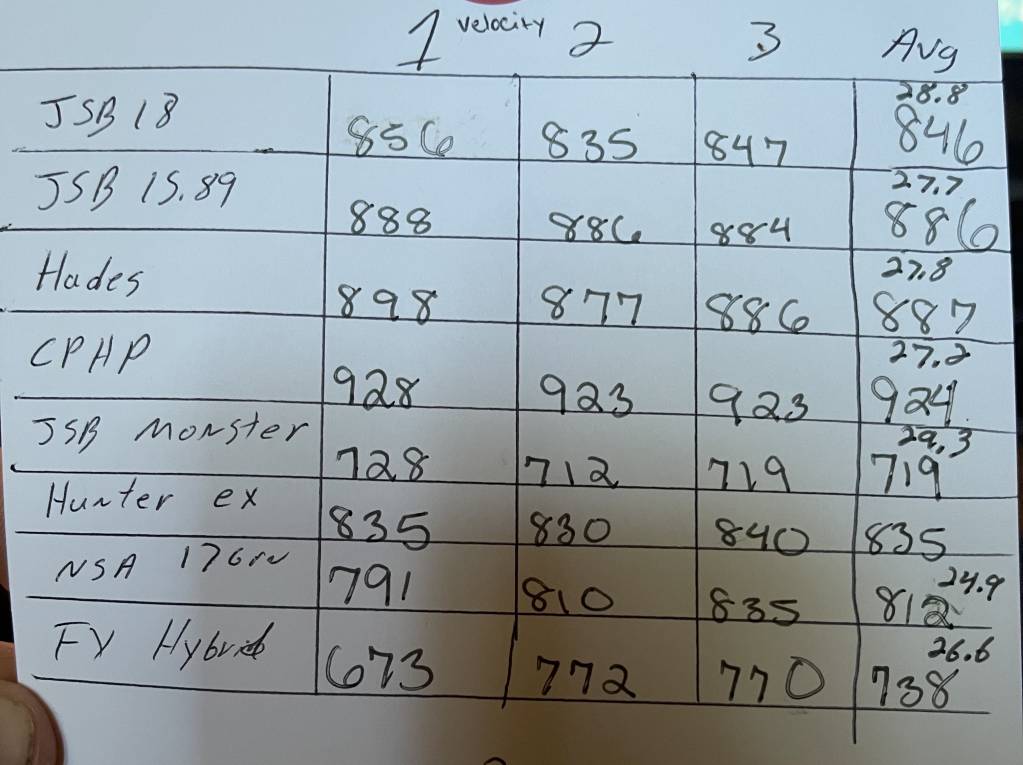 1 velocity 2 3 Avg
28.8
JSB 18 856 835 847 846
27.7
JSB 15.89 888 886 884 886
27.8
Hades 898 877 886 887
27.2
CPHP 928 923 923 924
29.3
JSB Monster 728 712 719 719
Hunter ex 835 830 840 835
24.9
NSA 17Grn 791 810 835 812
26.6
FX Hybrid 673 772 770 738